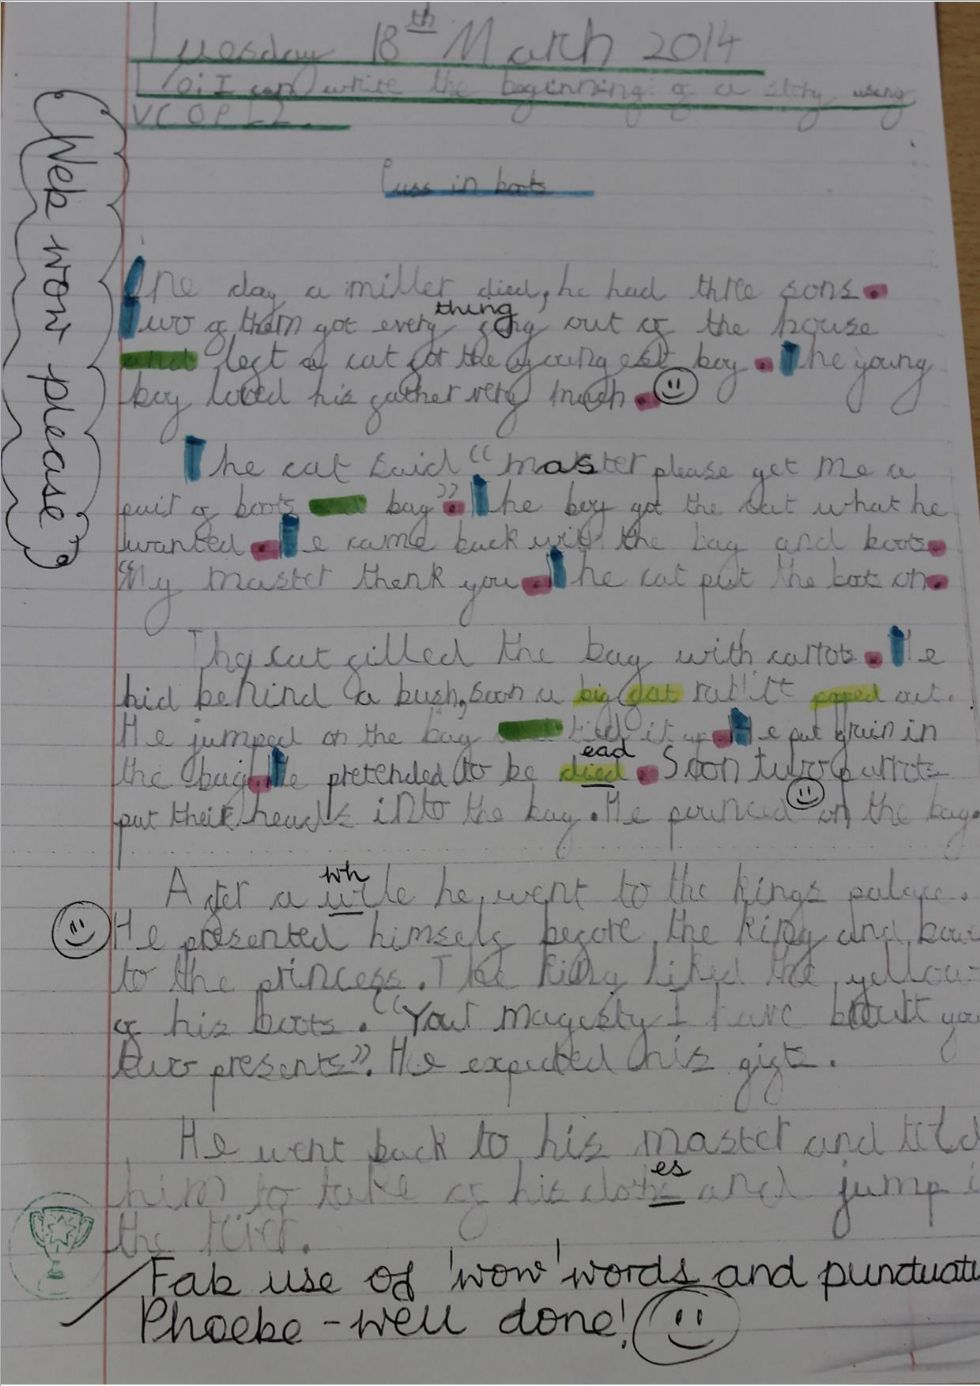 Tuesday 18th March 2014
Lo: I can write the beginning of a story using
VCOP L2.
Puss in boots
Web wow please?
One day a miller died, he had three sons.
Two of them got every thing out of the house
and left a cat for the youngest boy. The young
boy loved his father very much.
The cat said "master please get me a
pair of boots and bag". The boy got the cat what he
wanted. He came back with the bag and boots.
"My master thank you. The cat put the boots on.
The cat filled the bag with carrots. He
hid behind a bush, soon a big fat rabitt poped out.
He jumped on the bag and tied it up. He put grain in
the bag. He pretended to be died ead. Soon two parrots
put their heads into the bag. He pounced on the bag.
After a wile wh he went to the kings palace.
He presented himself before the king and
to the princess. The king liked the yellow
of his boots. "Your magesty I have you
two presents". He expected his gifts.
He went back to his master and told
him to take of his cloths es and jump
the river.
Fab use of 'wow' words and punctuati
Phoebe - well done!